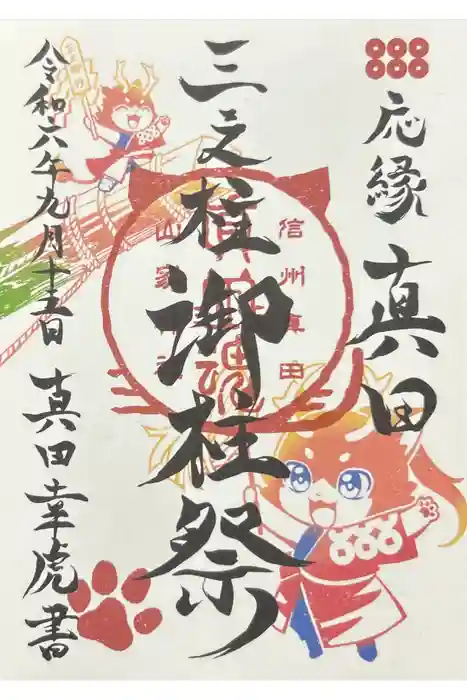 応縁 真田
三之柱 御柱祭
令和六年九月十五日 真田幸虎書
信州真田
山家